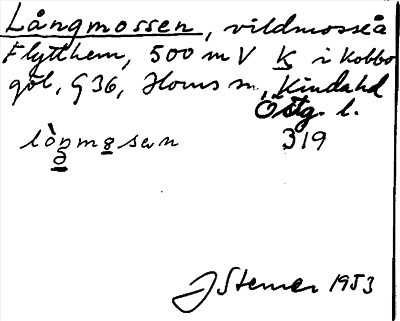 Långmossen, vildmosse å
Flytthem, 500 m V K i Kobbo
göl, G36, Horns sn, Kinda hd
Östg. l.
lòŋmøsən 319
J Stemer 1953